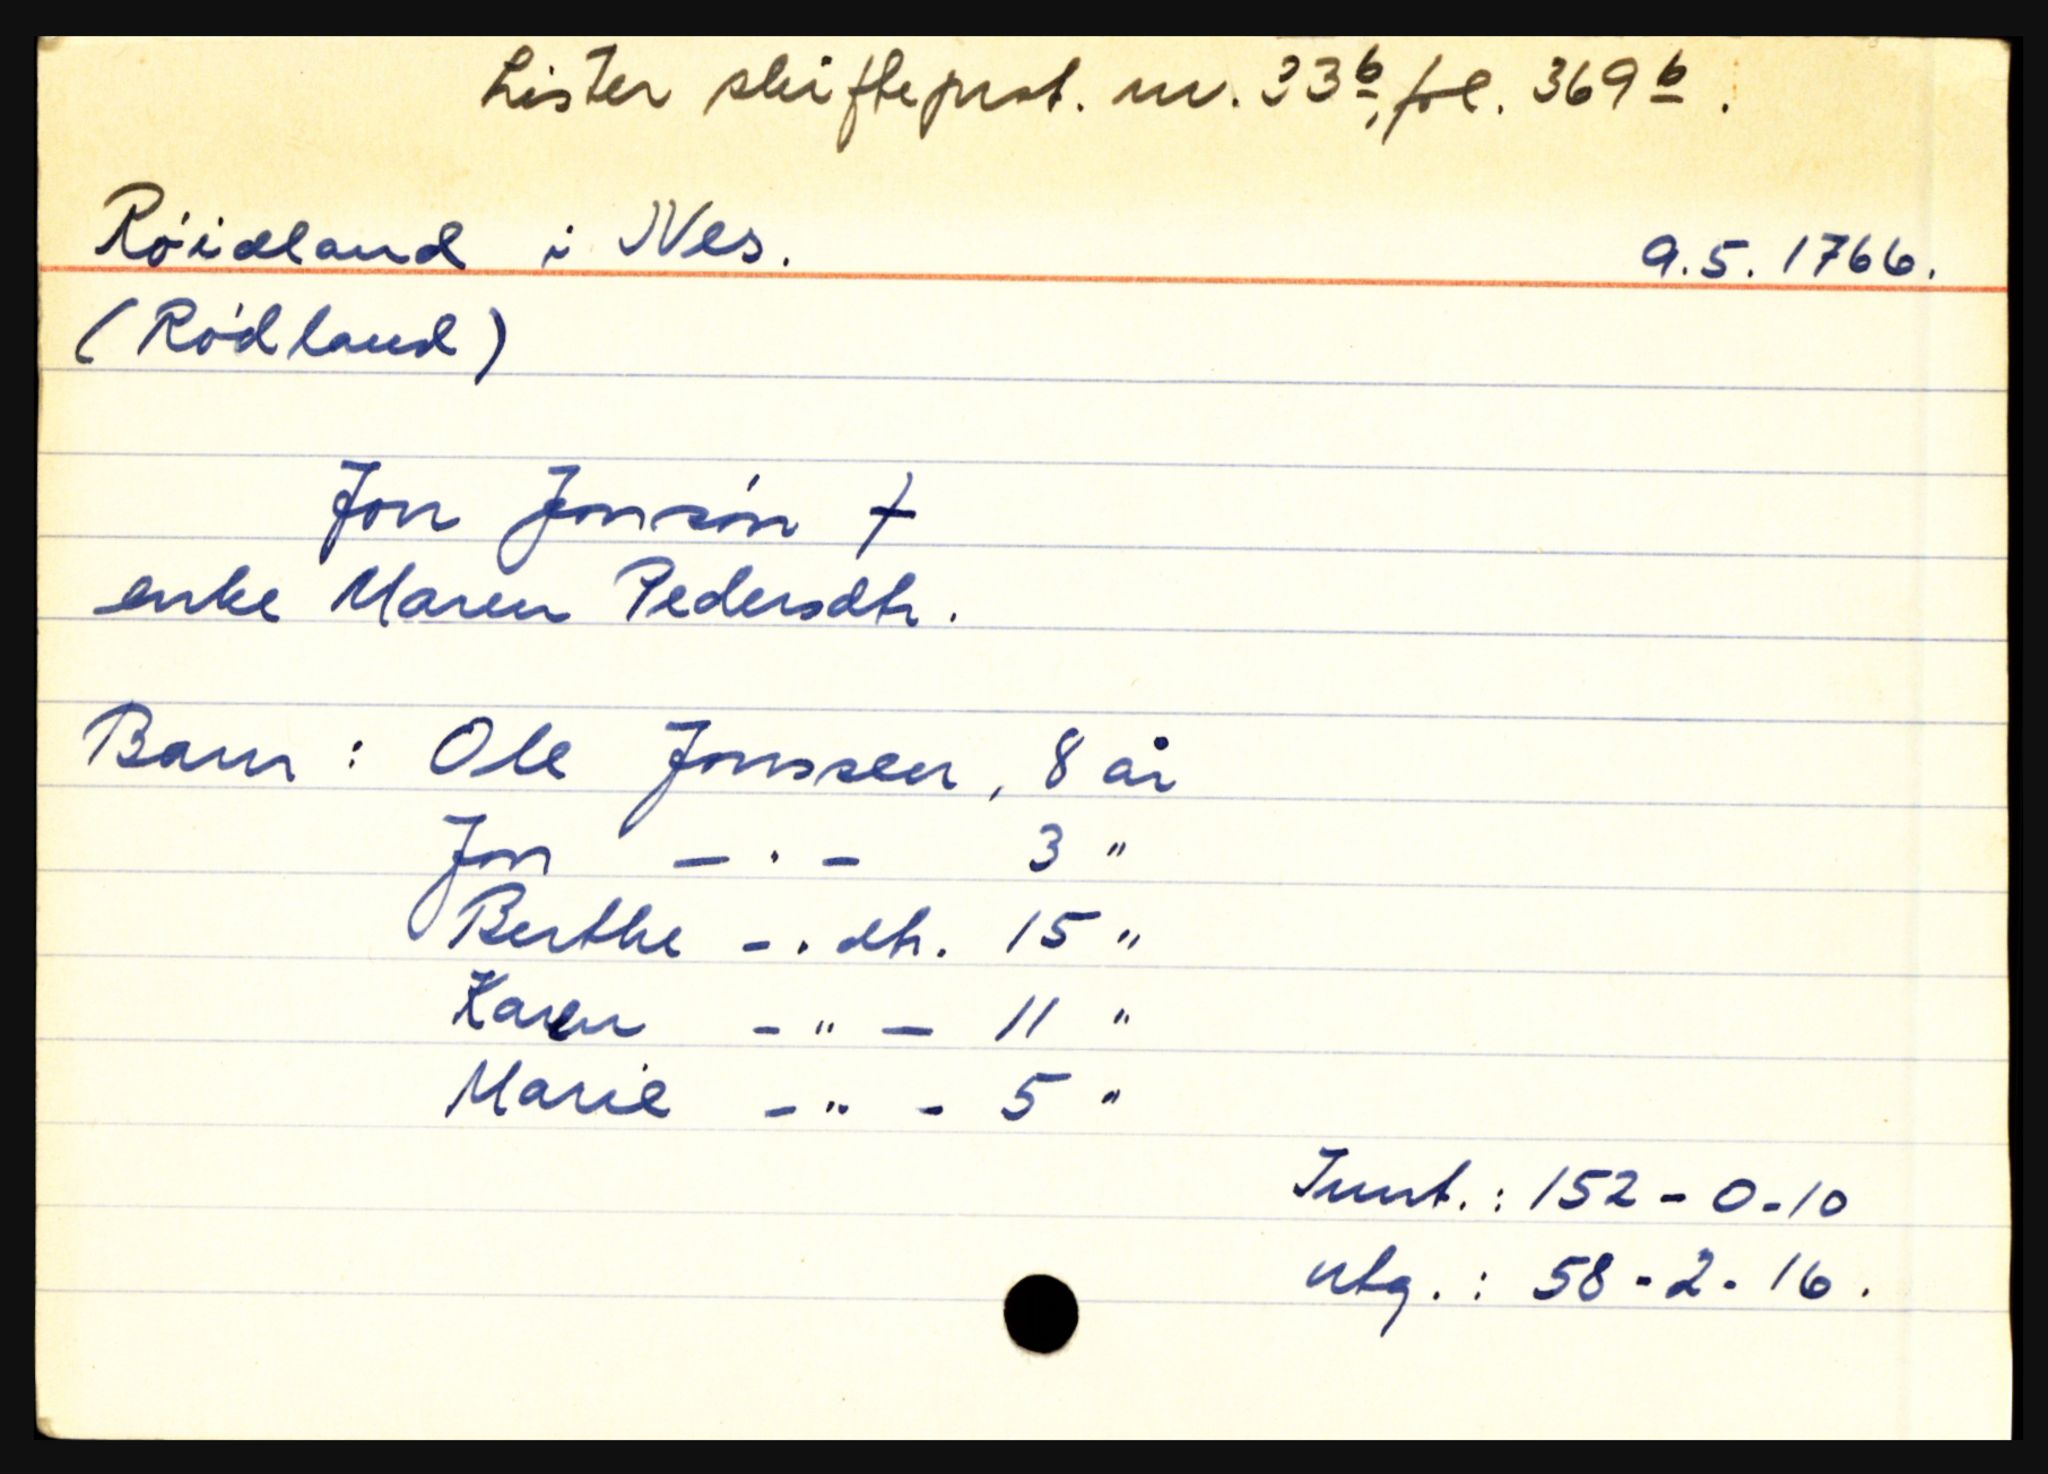 Lister skifteprot. nr. 33b, fol. 369b.
Röidland i Nes. 9.5.1766.
(Rödland)
Jon Jonsön †
enke Maren Pedersdtr.
Barn: Ole Jonssen, 8 år
Jon — . — 3 "
Berthe - . dtr. 15 "
Karen - " — 11 "
Marie - " - 5 "
Innt.: 152-0-10
utg.: 58-2-16.